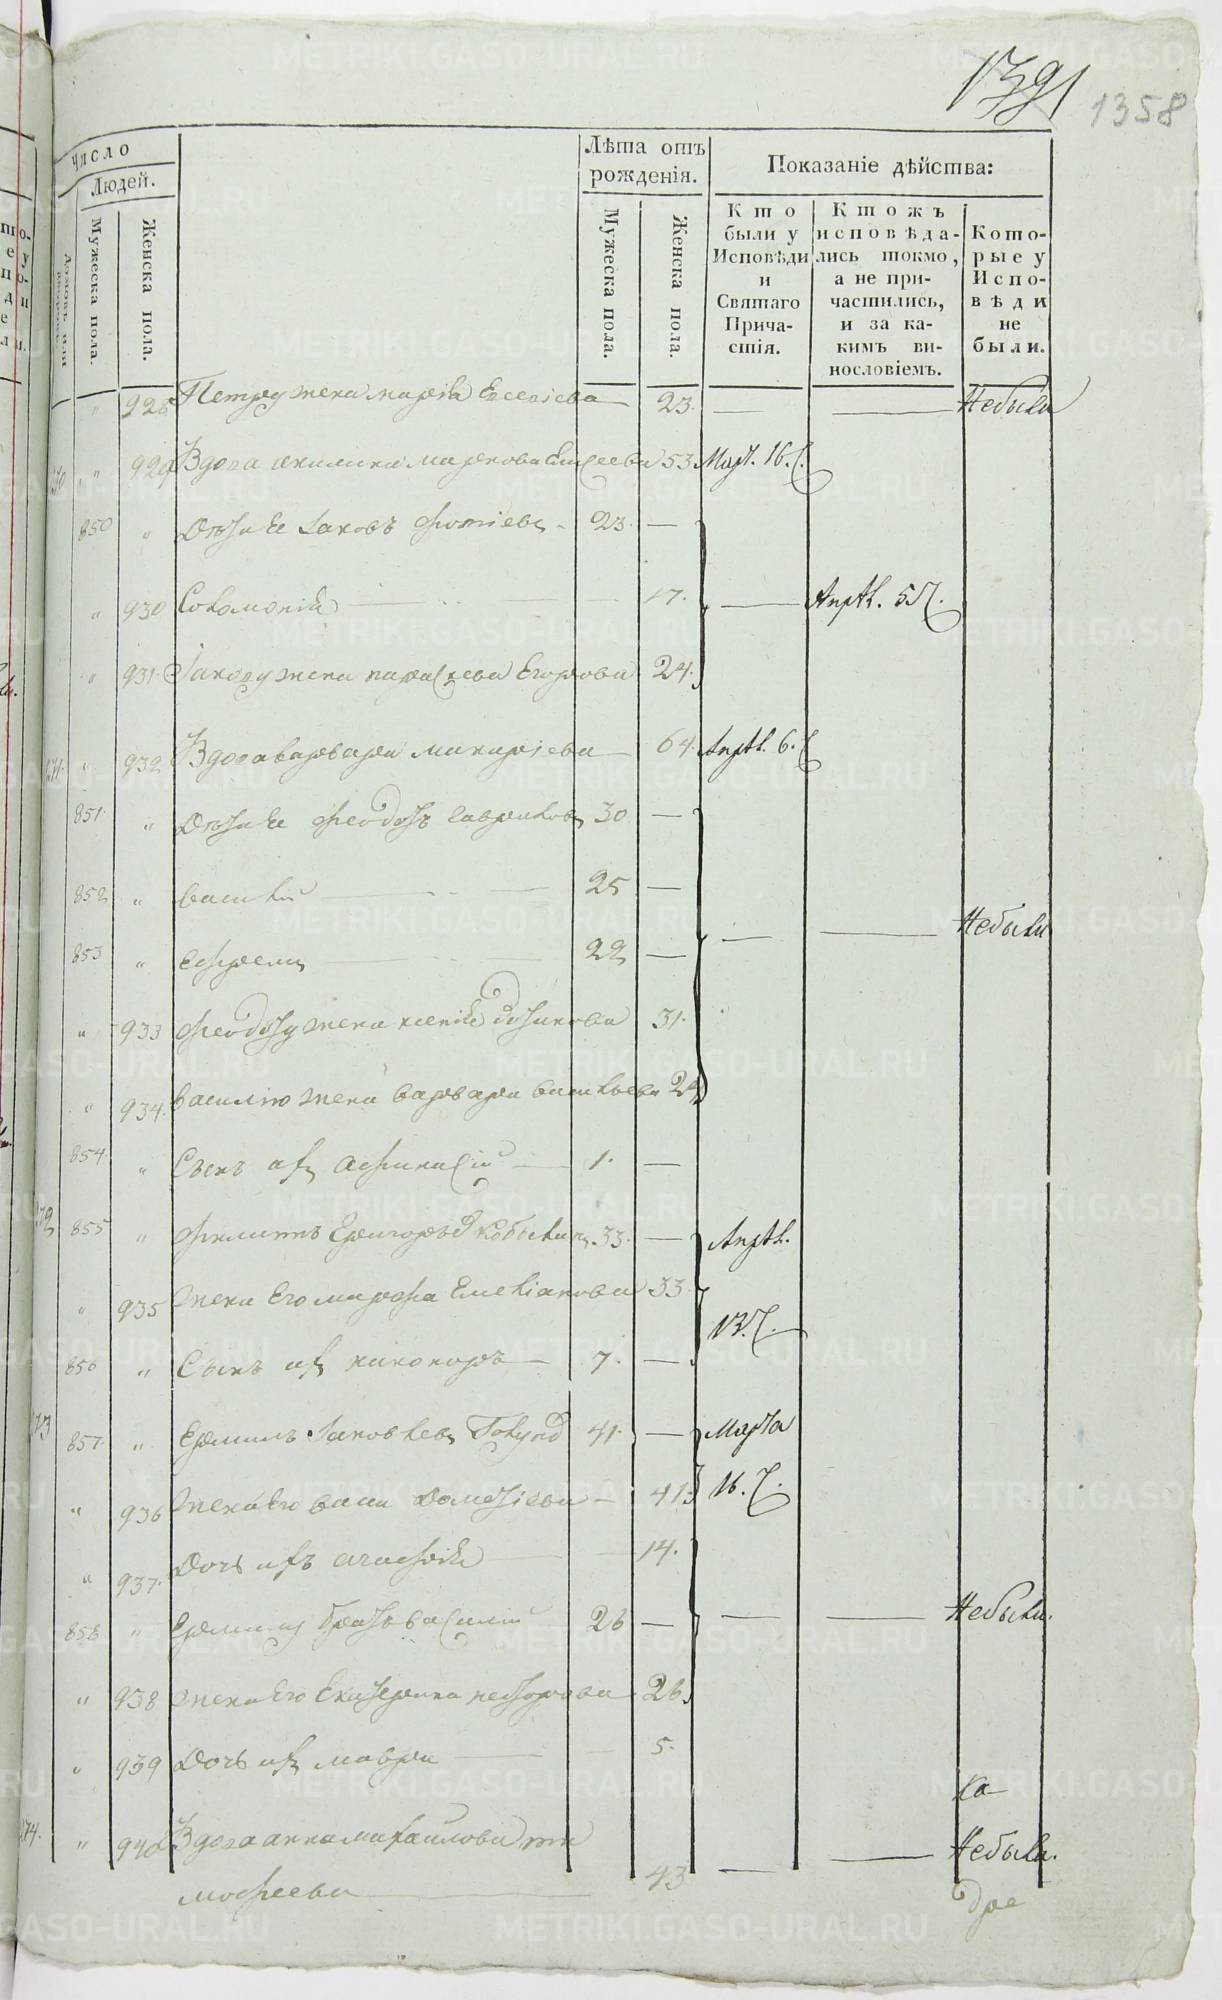 1391
1358
Число
Людей.
Мужеска пола.
Женска пола.
Лѣта отъ рожденія.
Мужеска пола.
Женска пола.
Показаніе дѣйства:
Кто были у Исповѣди и Святаго Причастія.
Ктожъ исповѣдались токмо, а не причастились, и за какимъ винословіемъ.
Которые у Исповѣди не были.
" 928 Петру жена марѳа Евсевіева — 23. — — Небыла
" 929 Вдова акилина маркова 53 Март. 16.
850 " Дѣти Ея Іаковъ Фотіевъ 23. —
" 930 Соломонія — 17. — Апрѣл. 5
" 931. Іакову жена параскева Егорова 24.
" 932 Вдова варвара макаріева — 64. Апрѣл. 6.
851. " Дѣти Ея Феодотъ Гавриловъ 30 —
852 " василій — 25 —
853 " Ефремъ — 22 — — — Небыли
" 933 Феодоту жена ксенія 31.
" 934. василію жена варвара васильева
854 " Сынъ ихъ Афанасій — 1. —
855 " Филиппъ Григорьевъ Кобылинъ 33. — Апрѣл.
" 935 жена Его марфа Емеліанова 33 13.
856 " Сынъ ихъ никаноръ — 7. —
857. " Ермилъ Іаковлевъ 41. — Марта
" 936 жена Его Дометіева — 41 16.
" 937. Дочь ихъ агафія — 14.
858 " Ермилу братъ василій 26 — — — Небыли.
" 938 жена Его Екатерина несторова 26
" 939 Дочь ихъ мавра — 5.
" 940 Вдова анна михаилова ти
мофеева — 43 — — Небыла.